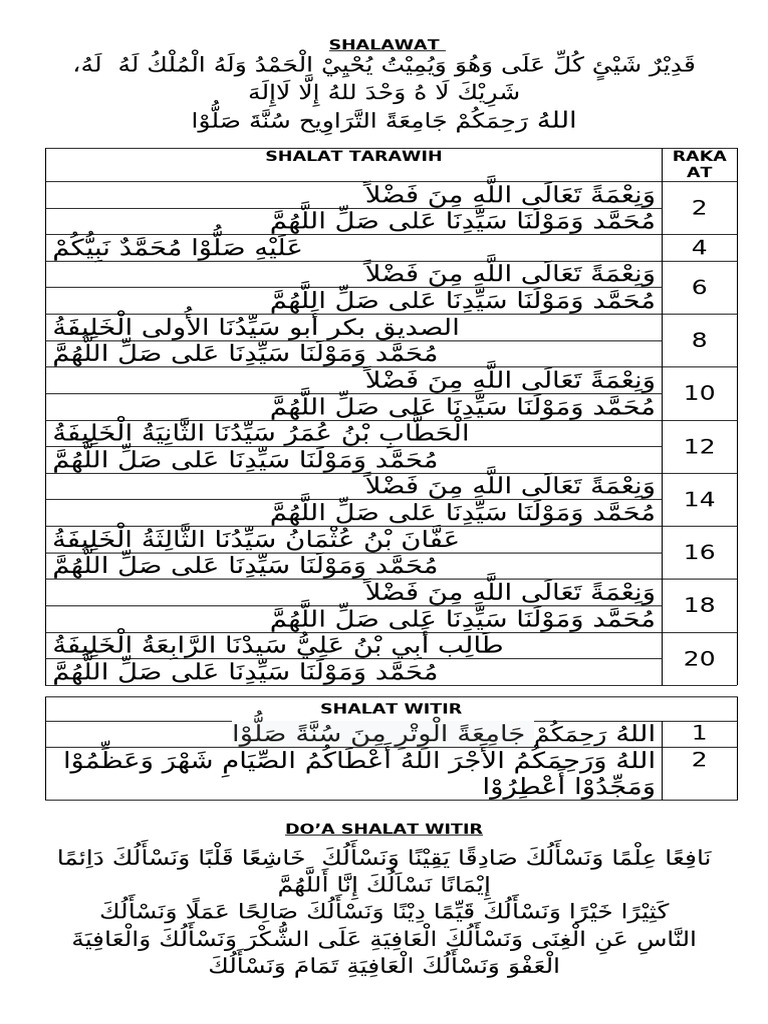 SHALAWAT
قَدِيْرٌ شَيْئٍ كُلِّ عَلَى وَهُوَ وَيُمِيْتُ يُحْيِيْ الْحَمْدُ وَلَهُ الْمُلْكُ لَهُ لَهُ،
شَرِيْكَ لَا هُ وَحْدَ للهُ إِلَّا لَاإِلَهَ
اللهُ رَحِمَكُمْ جَامِعَةً التَّرَاوِيح سُنَّةَ صَلُّوْا
SHALAT TARAWIH RAKA
AT
وَنِعْمَةً تَعَالَى اللَّهِ مِنَ فَضْلاً
2
مُحَمَّد وَمَوْلَنَا سَيِّدِنَا عَلى صَلِّ اللَّهُمَّ
عَلَيْهِ صَلُّوْا مُحَمَّدٌ نَبِيُّكُمْ
4
وَنِعْمَةً تَعَالَى اللَّهِ مِنَ فَضْلاً
6
مُحَمَّد وَمَوْلَنَا سَيِّدِنَا عَلى صَلِّ اللَّهُمَّ
الصديق بكر أَبو سَيِّدُنَا الأُولى الْخَلِيفَةُ
8
مُحَمَّد وَمَوْلَنَا سَيِّدِنَا عَلى صَلِّ اللَّهُمَّ
وَنِعْمَةً تَعَالَى اللَّهِ مِنَ فَضْلاً
10
مُحَمَّد وَمَوْلَنَا سَيِّدِنَا عَلى صَلِّ اللَّهُمَّ
الْحَطَّابِ بْنُ عُمَرُ سَيِّدُنَا الثَّانِيَةُ الْخَلِيفَةُ
12
مُحَمَّد وَمَوْلَنَا سَيِّدِنَا عَلى صَلِّ اللَّهُمَّ
وَنِعْمَةً تَعَالَى اللَّهِ مِنَ فَضْلاً
14
مُحَمَّد وَمَوْلَنَا سَيِّدِنَا عَلى صَلِّ اللَّهُمَّ
عَفَّانَ بْنُ عُثْمَانُ سَيِّدُنَا الثَّالِثَةُ الْخَلِيفَةُ
16
مُحَمَّد وَمَوْلَنَا سَيِّدِنَا عَلى صَلِّ اللَّهُمَّ
وَنِعْمَةً تَعَالَى اللَّهِ مِنَ فَضْلاً
18
مُحَمَّد وَمَوْلَنَا سَيِّدِنَا عَلى صَلِّ اللَّهُمَّ
طَالِب أَبِي بْنُ عَلِيُّ سَيِدْنَا الرَّابِعَةُ الْخَلِيفَةُ
20
مُحَمَّد وَمَوْلَنَا سَيِّدِنَا عَلى صَلِّ اللَّهُمَّ
SHALAT WITIR
اللهُ رَحِمَكُمْ جَامِعَةً الْوِتْرِ مِنَ سُنَّةً صَلُّوْا
1
اللهُ وَرَحِمَكُمُ الأَجْرَ اللهُ أَعْطَاكُمُ الصِّيَامِ شَهْرَ وَعَظِّمُوْا
2
وَمَجِّدُوْا أَعْطِرُوْا
DO’A SHALAT WITIR
نَافِعًا عِلْمًا وَنَسْأَلُكَ صَادِقًا يَقِيْنًا وَنَسْأَلُكَ خَاشِعًا قَلْبًا وَنَسْأَلُكَ دَاِئمًا
إِيْمَانًا نَسْاَلُكَ إِنَّا أَللَّهُمَّ
كَثِيْرًا خَيْرًا وَنَسْأَلُكَ قَيِّمًا دِيْنًا وَنَسْأَلُكَ صَالِحًا عَمَلًا وَنَسْأَلُكَ
النَّاسِ عَنِ الْغِنَى وَنَسْأَلُكَ الْعَافِيَةِ عَلَى الشُّكْرَ وَنَسْأَلُكَ وَالْعَافِيَةَ
الْعَفْوَ وَنَسْأَلُكَ الْعَافِيَةِ تَمَامَ وَنَسْأَلُكَ